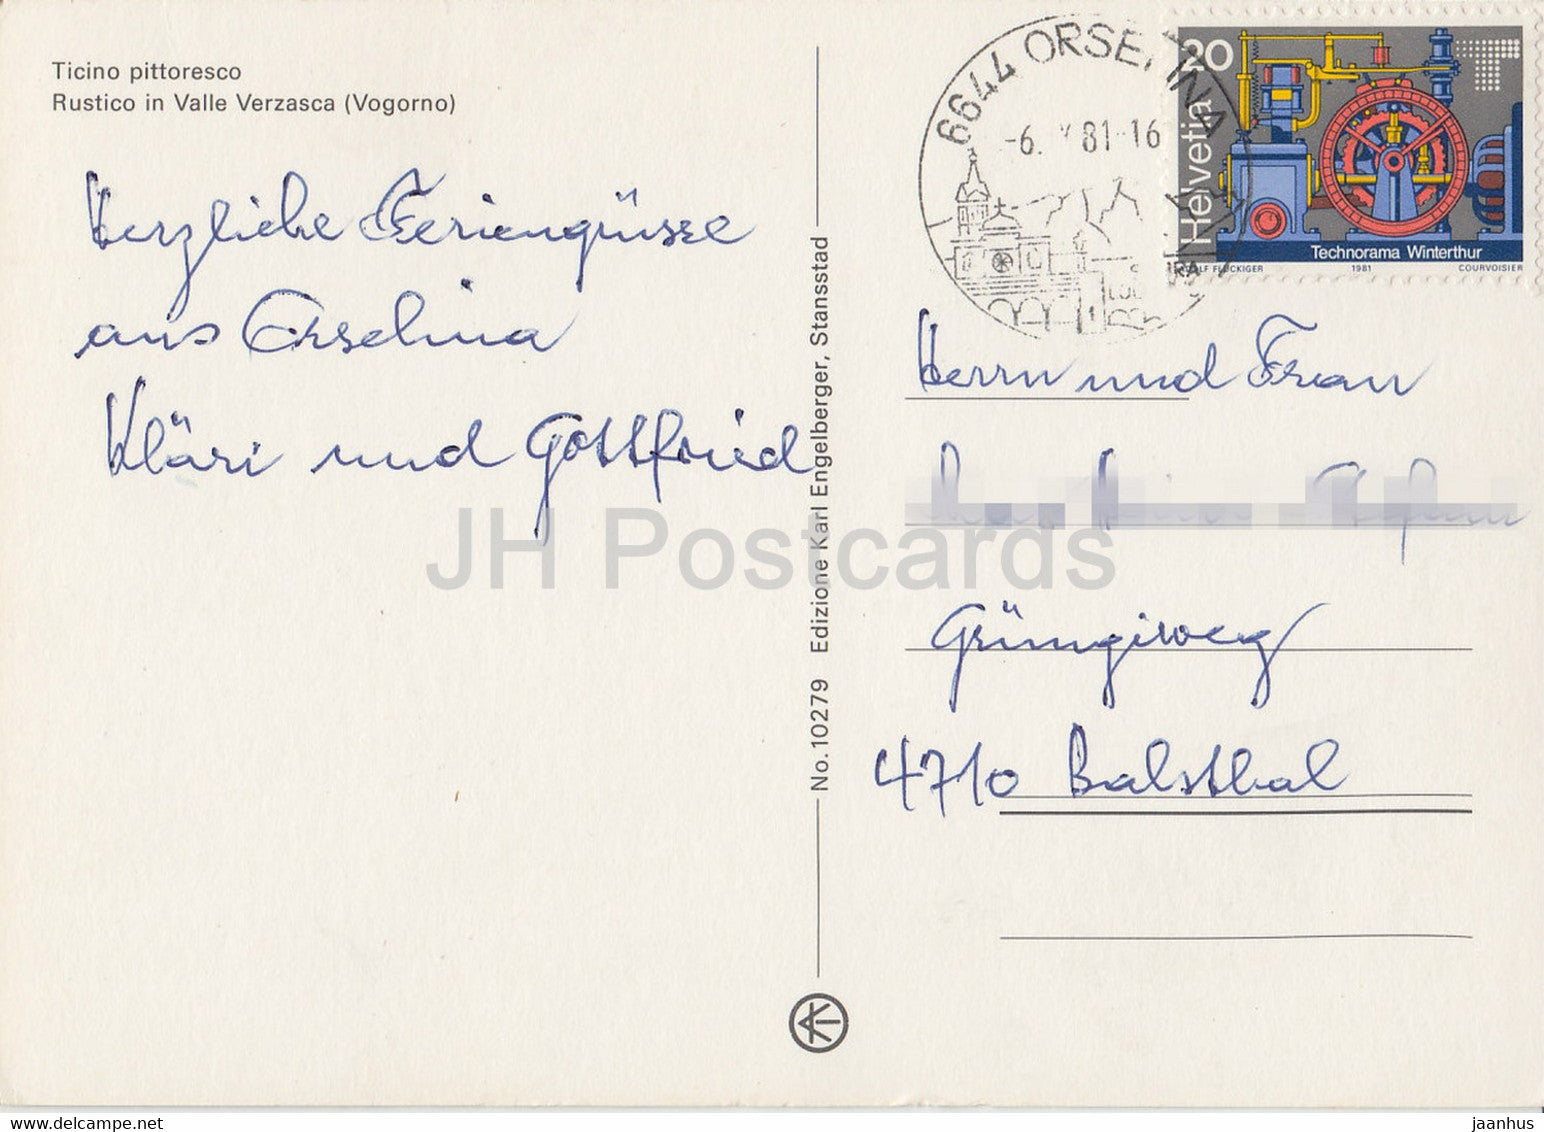 Ticino pittoresco
Rustico in Valle Verzasca (Vogorno)
Herzliche Feriengrüsse
aus Orselina
Kläri und Gottfried
No. 10279 Edizione Karl Engelberger, Stansstad
6644 ORSELINA
-6. 81-16
20
Helvetia
Technorama Winterthur
1981 COURVOISIER
Herrn und Frau
Grüngiweg
4710 Balsthal
JH Postcards
jaanhus @ www.delcampe.net